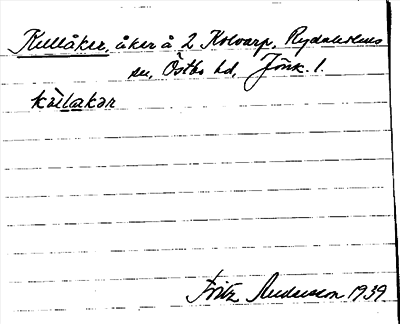 Kullåker, åker å 2 Kolvarp, Rydaholms
sn, Östbo hd, Jönk. l.
kùllakər
Fritz Andersson 1939